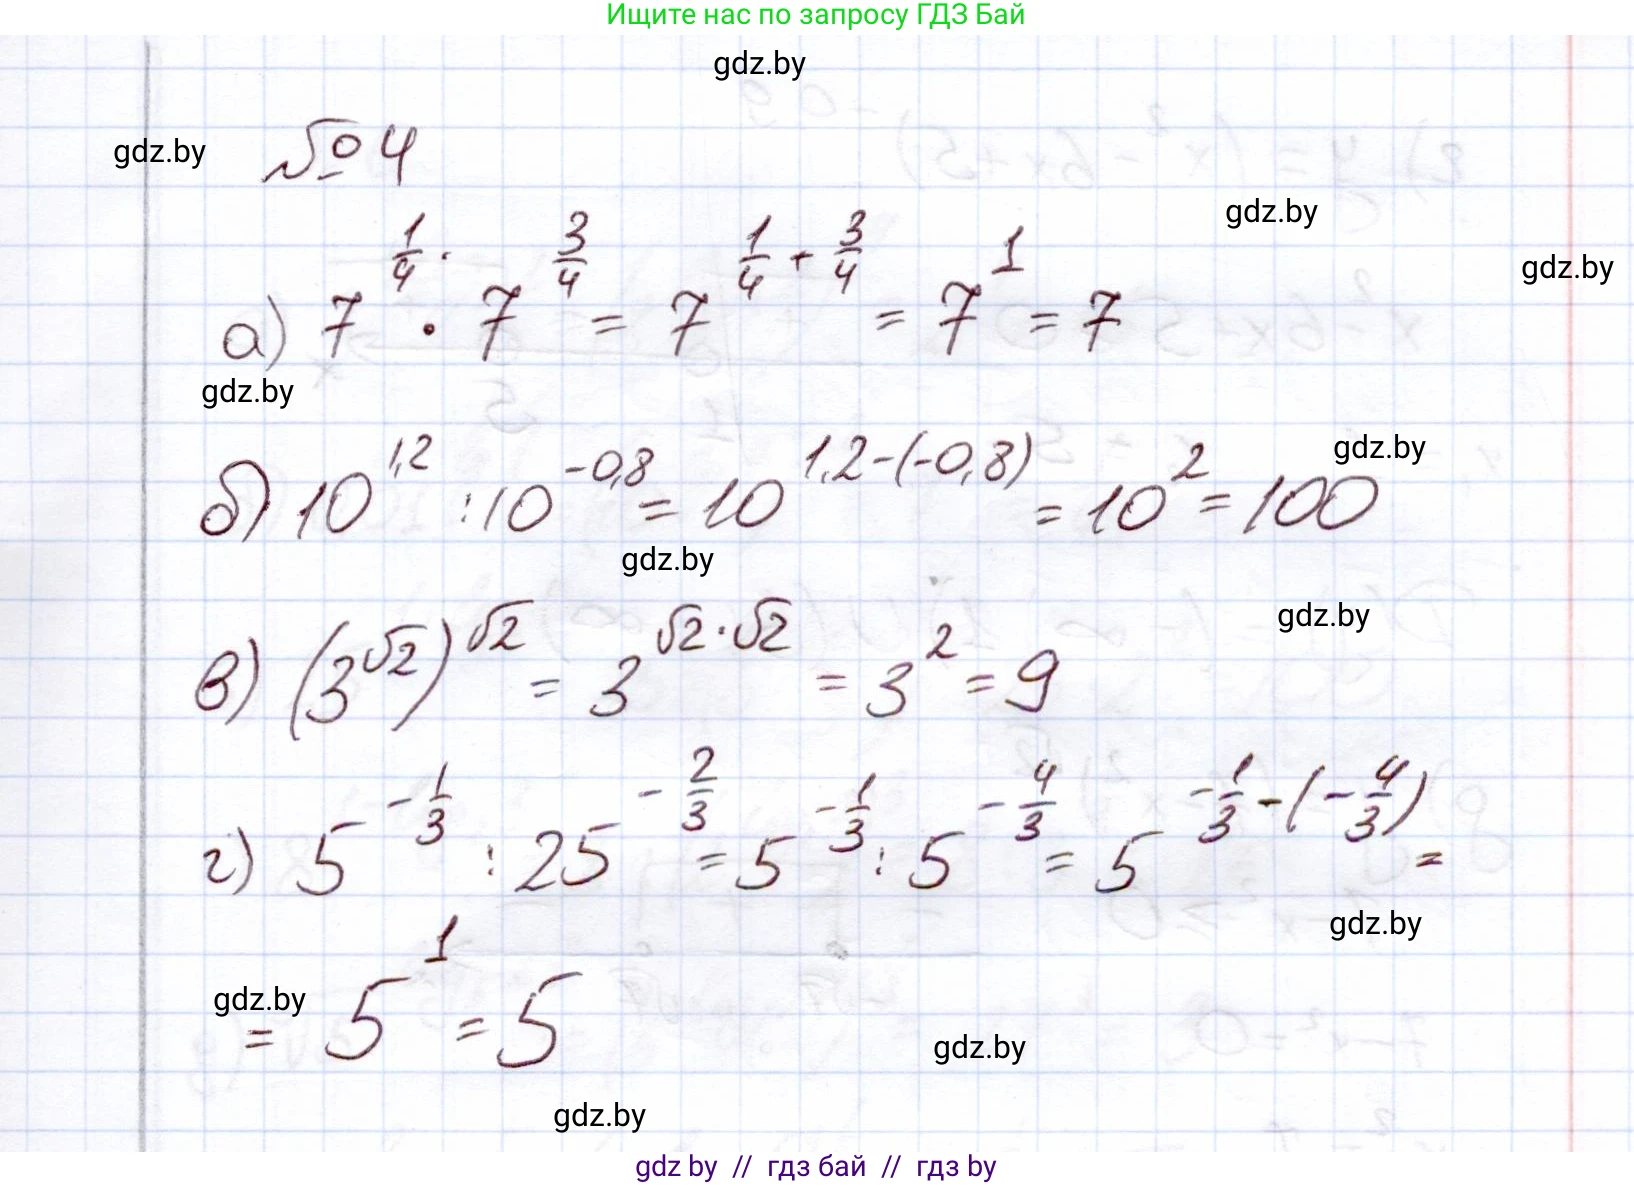 Ищите нас по запросу ГДЗ Бай
gdz.by
gdz.by
№ 4
gdz.by
gdz.by
а) 7^{1/4} · 7^{3/4} = 7^{1/4 + 3/4} = 7^1 = 7
gdz.by
gdz.by
б) 10^{1,2} : 10^{-0,8} = 10^{1,2-(-0,8)} = 10^2 = 100
gdz.by
gdz.by
в) (3^{√2})^{√2} = 3^{√2·√2} = 3^2 = 9
г) 5^{-1/3} : 25^{-2/3} = 5^{-1/3} : 5^{-4/3} = 5^{-1/3-(-4/3)} =
gdz.by
gdz.by
= 5^1 = 5
gdz.by
gdz.by
gdz by // гдз бай // гдз by